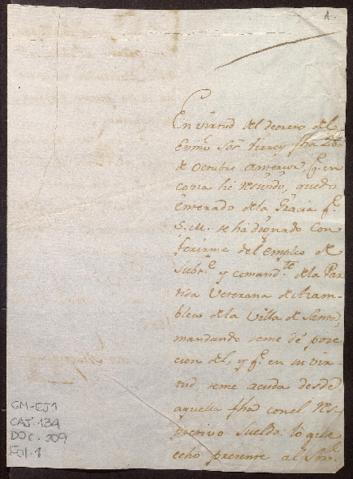 1.
En virtud del decreto del
Exmo Sor Virrey fha
de Octubre anterior q.e en
copia hé recivido, quedo
enterado de la Gracia q.e
S.M. se há dignado con
ferirme del empleo de
Subt.e y comand.te de la Par
tida Veterana de
de la Villa de
mandando seme dé pose
cion del, y q.e en su vir
tud, seme acuda desde
aquella fha con el res
pectivo sueldo: lo q.e he
echo presente al Sor.
GM-EJ1
CAJ.134
DOC.309
Fol.1